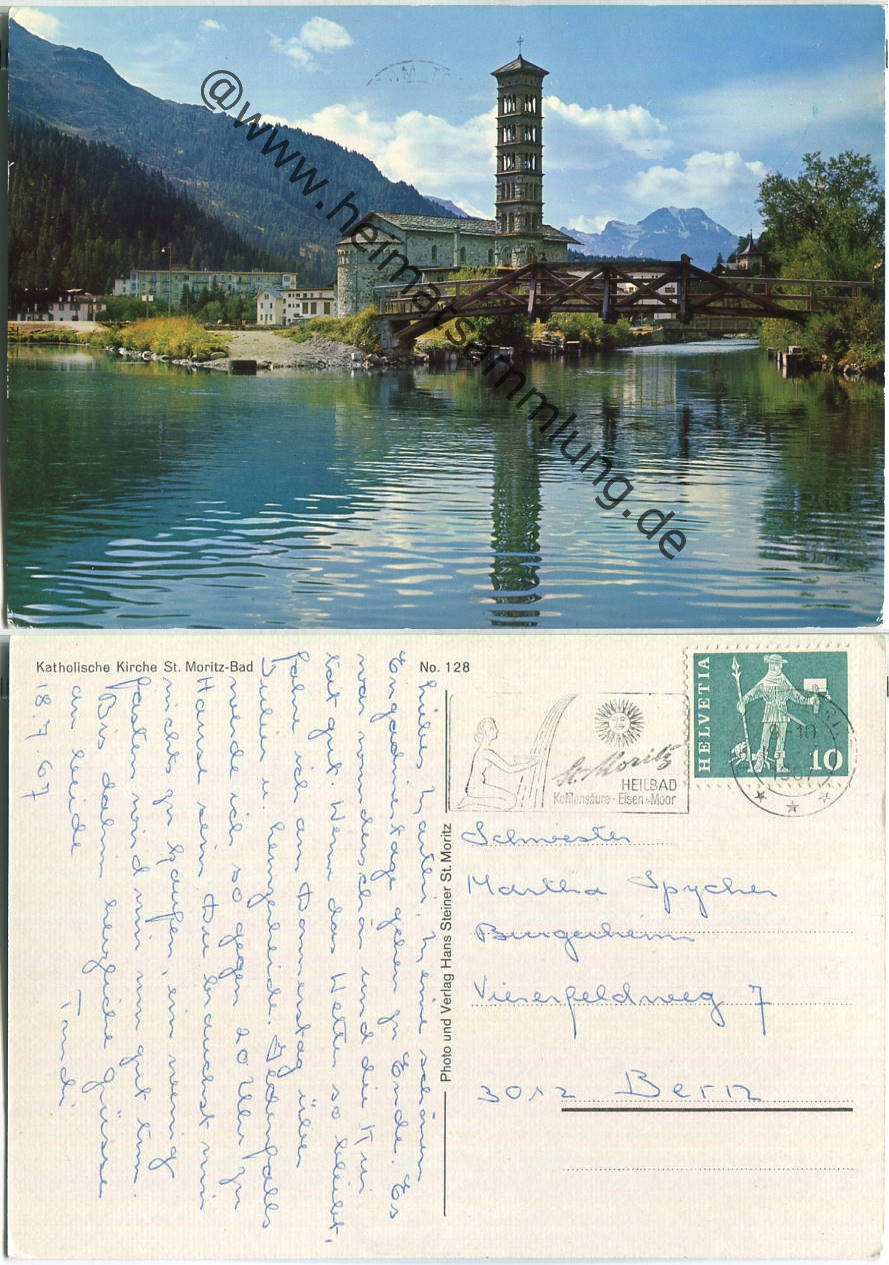 @www.heimatsammlung.de
Katholische Kirche St. Moritz-Bad
No. 128
Liebes Marteli, Meine schönen
Engadinertage gehen zu Ende. Es
war wunderschön und die Kur
tat gut. Wenn das Wetter so bleibt,
fahre ich am Donnerstag über
Julier u. Lenzerheide. Jedenfalls
werde ich so gegen 20 Uhr zu
Hause sein. Du brauchst mir
nichts zu kaufen, ein wenig
fasten wird mir nur gut tun.
Bis dahin herzliche Grüsse
an beide
18. 7. 67
Photo und Verlag Hans Steiner St. Moritz
St. Moritz
HEILBAD
Kohlensäure - Eisen - Moor
HELVETIA
10
Schwester
Martha Spycher
Burgerheim
Viererfeldweg 7
3012 Bern